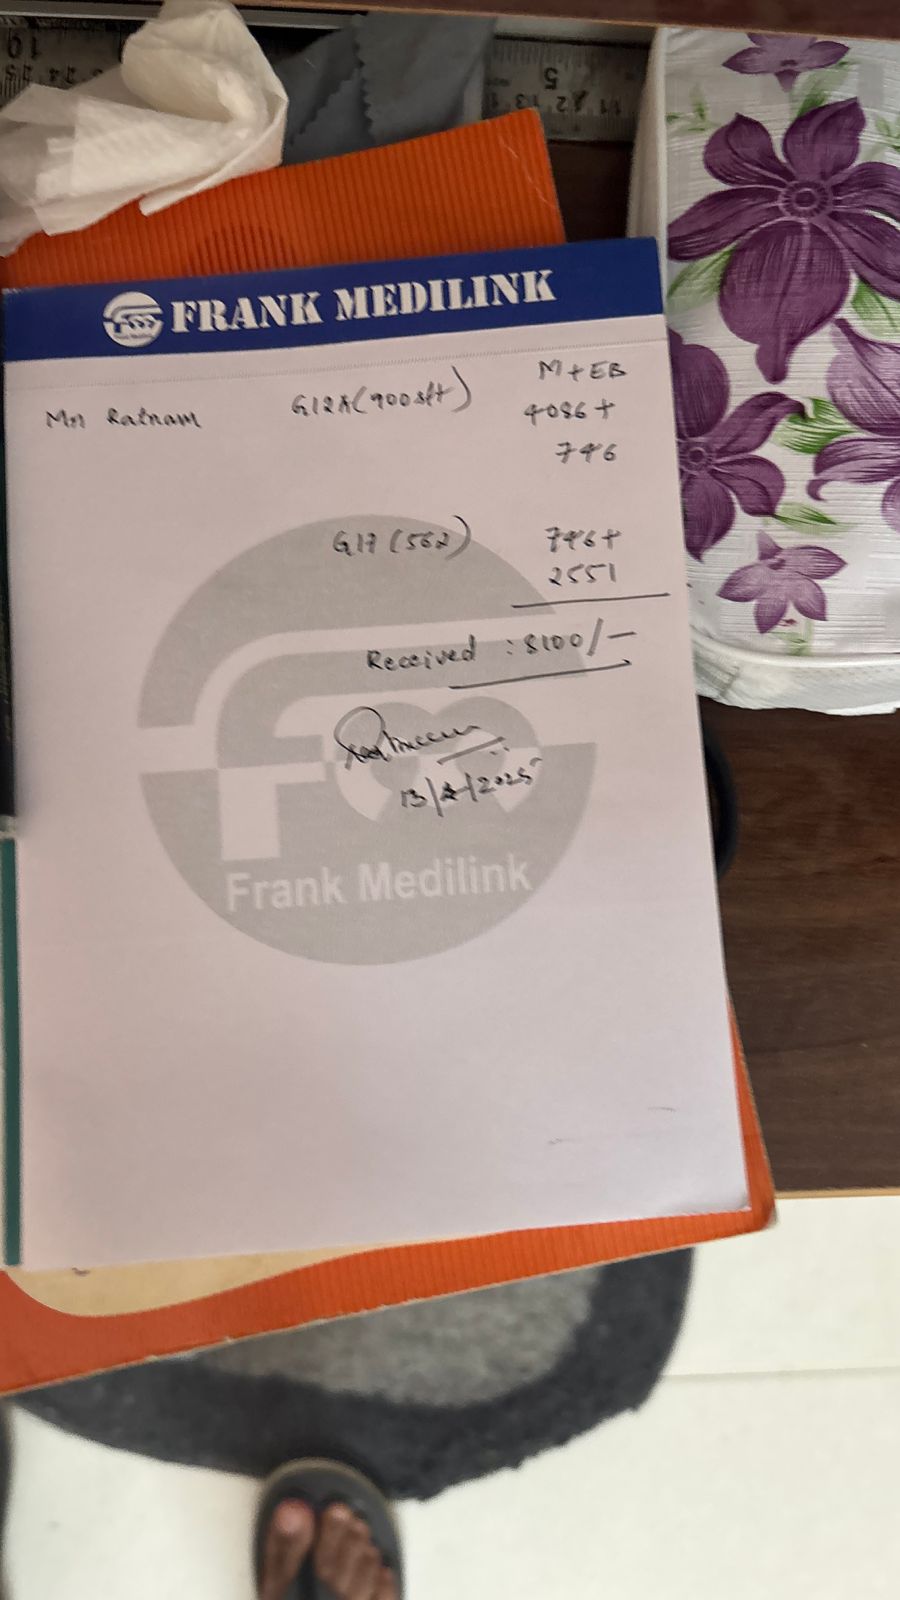 FRANK MEDILINK
M + EB
Mr Ratnam G12A (900 sft) 4086 +
746
G17 (562) 746 +
2551
Received : 8100/-
13/ /2025
Frank Medilink